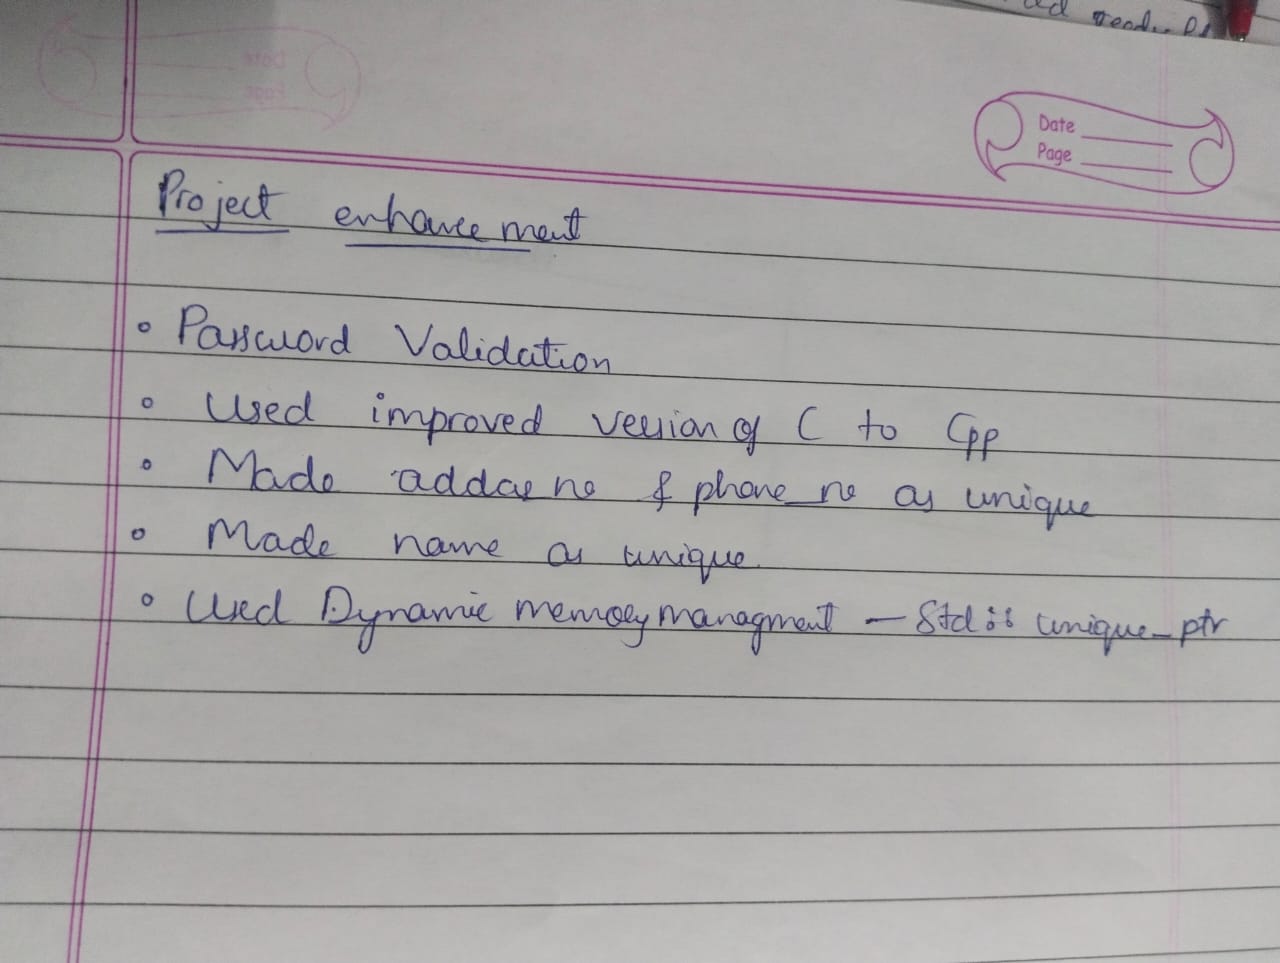 Date
Page
Project enhancement
Password Validation
Used improved version of C to Cpp
Made addar no & phone no as unique
Made name as unique.
Used Dynamic memory managment - Std :: unique_ptr